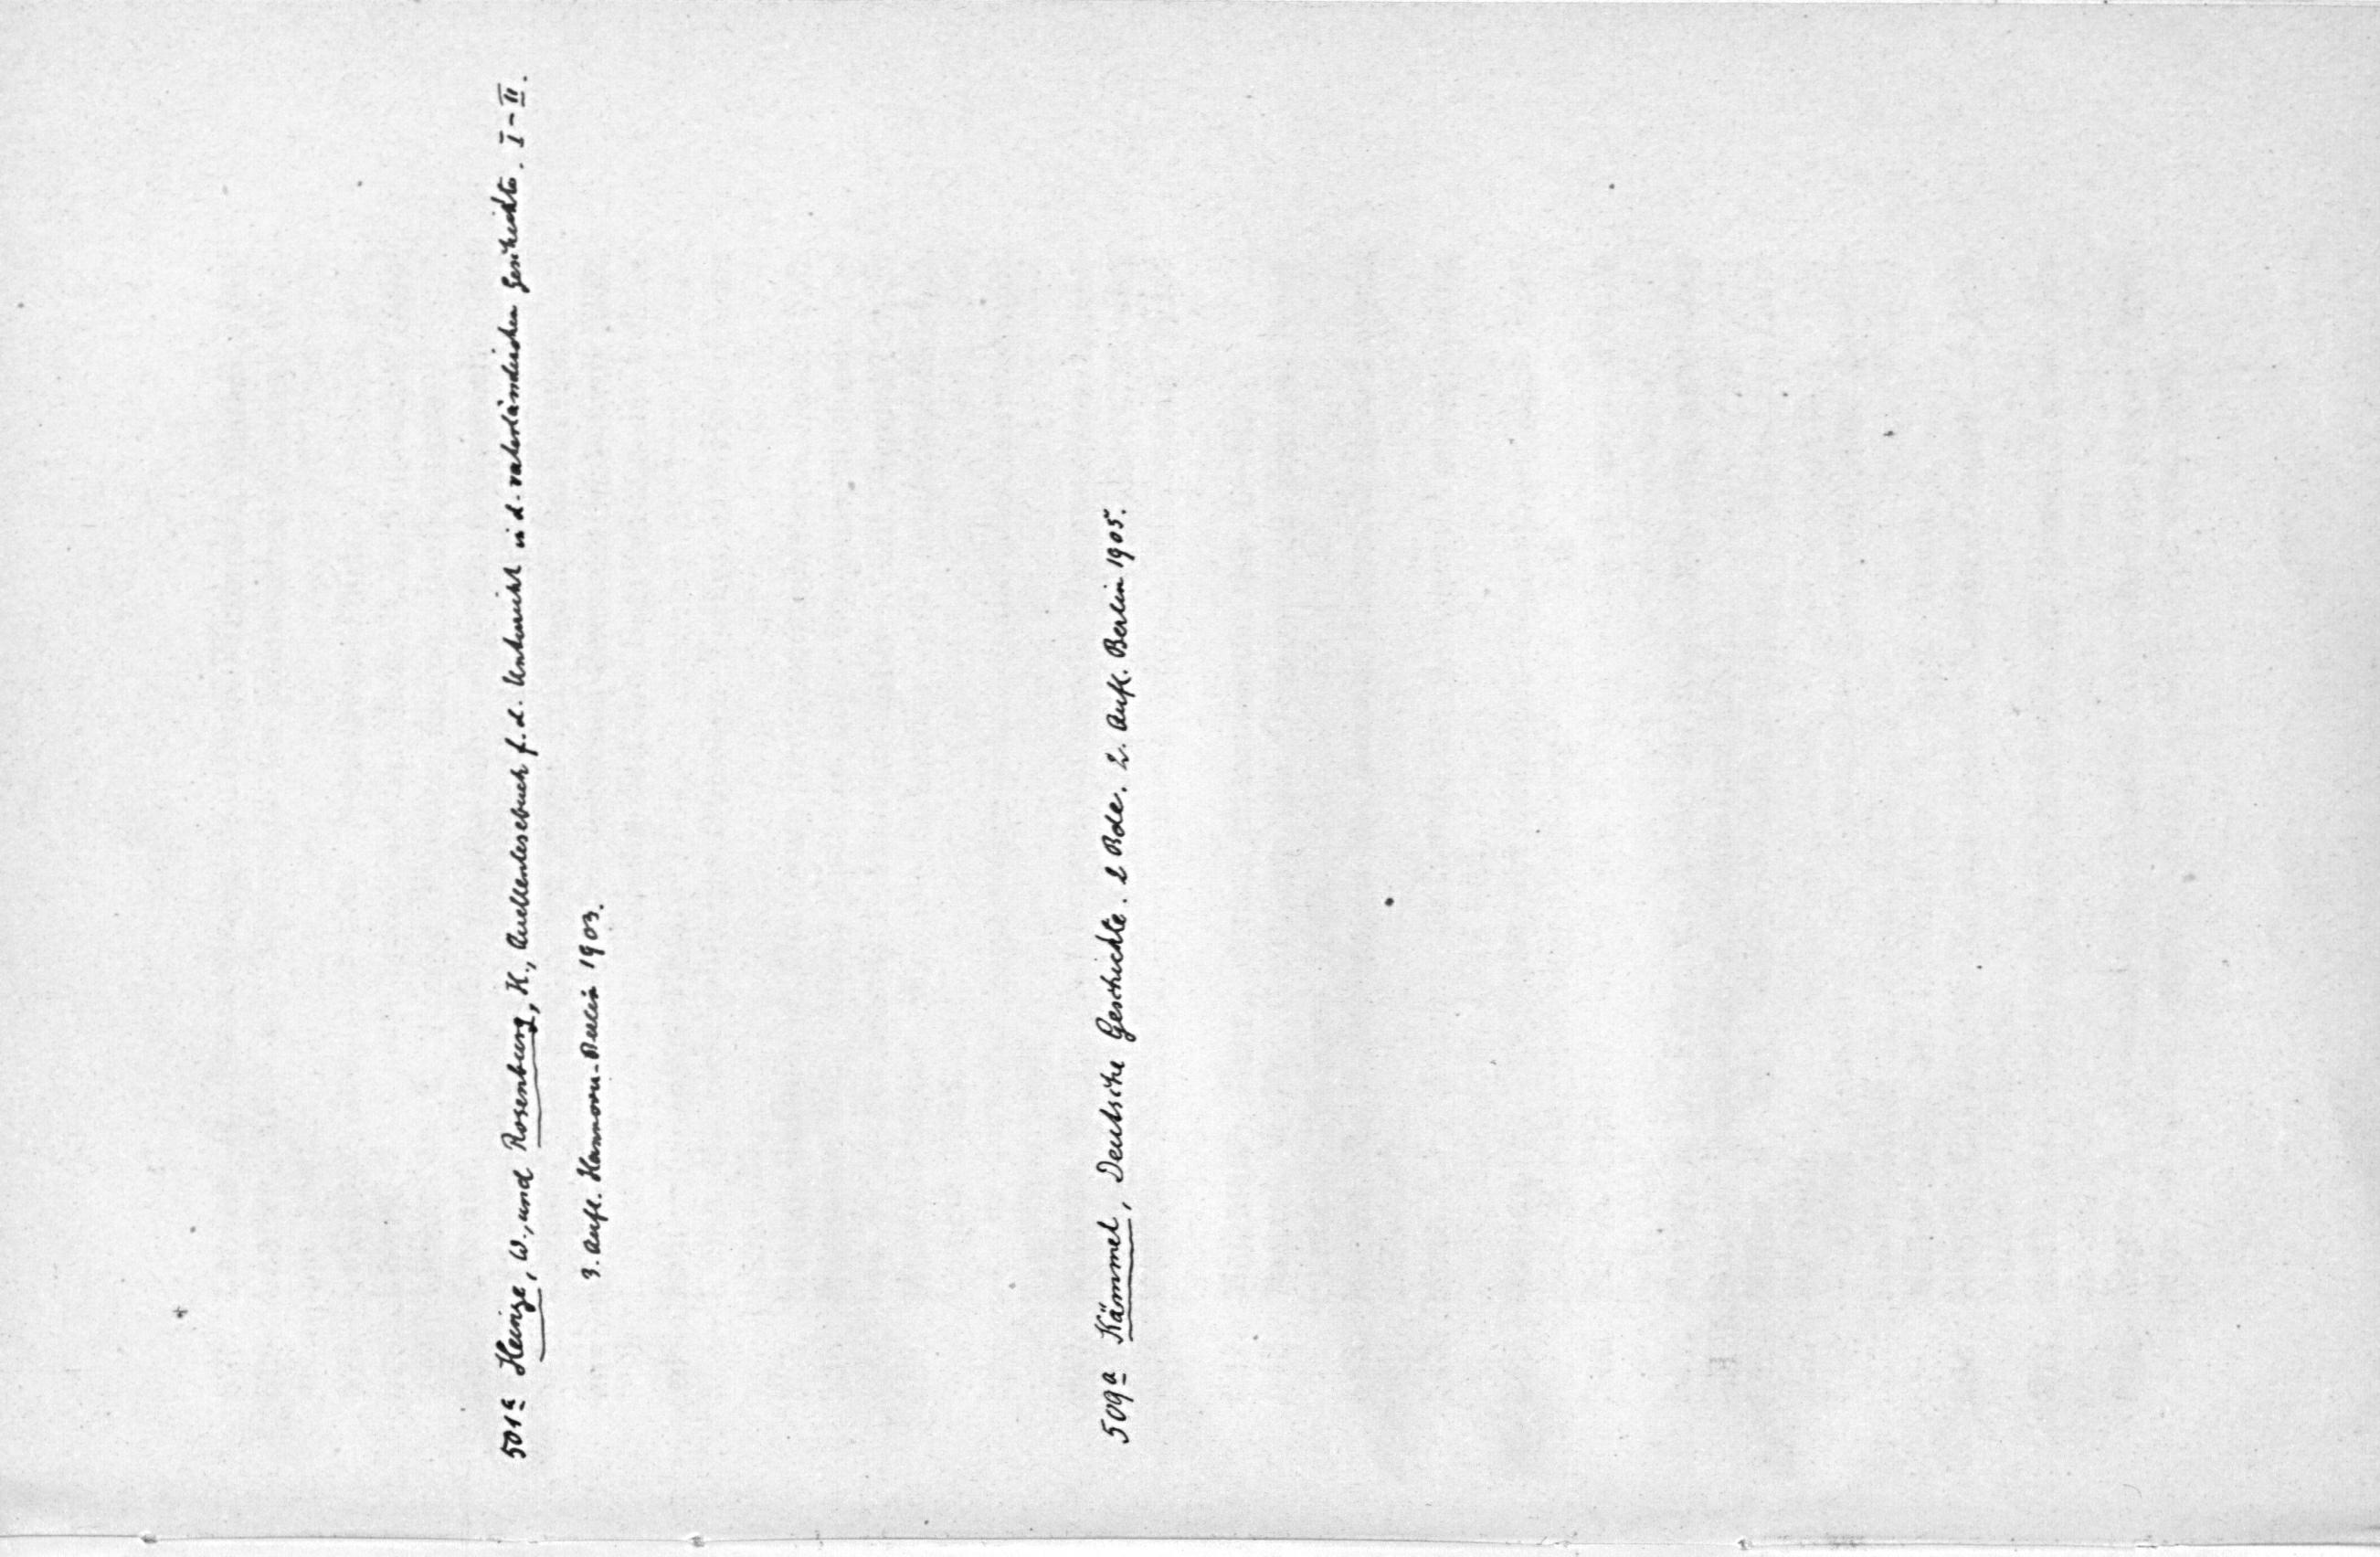 501a Heinze, W., und Rosenburg, H., Quellenlesebuch f. d. Unterricht in d. vaterländischen Geschichte. I-II.
3. Aufl. Hannover-Berlin 1903.
509a Kämmel, Deutsche Geschichte. 2 Bde. 2. Aufl. Berlin 1905.